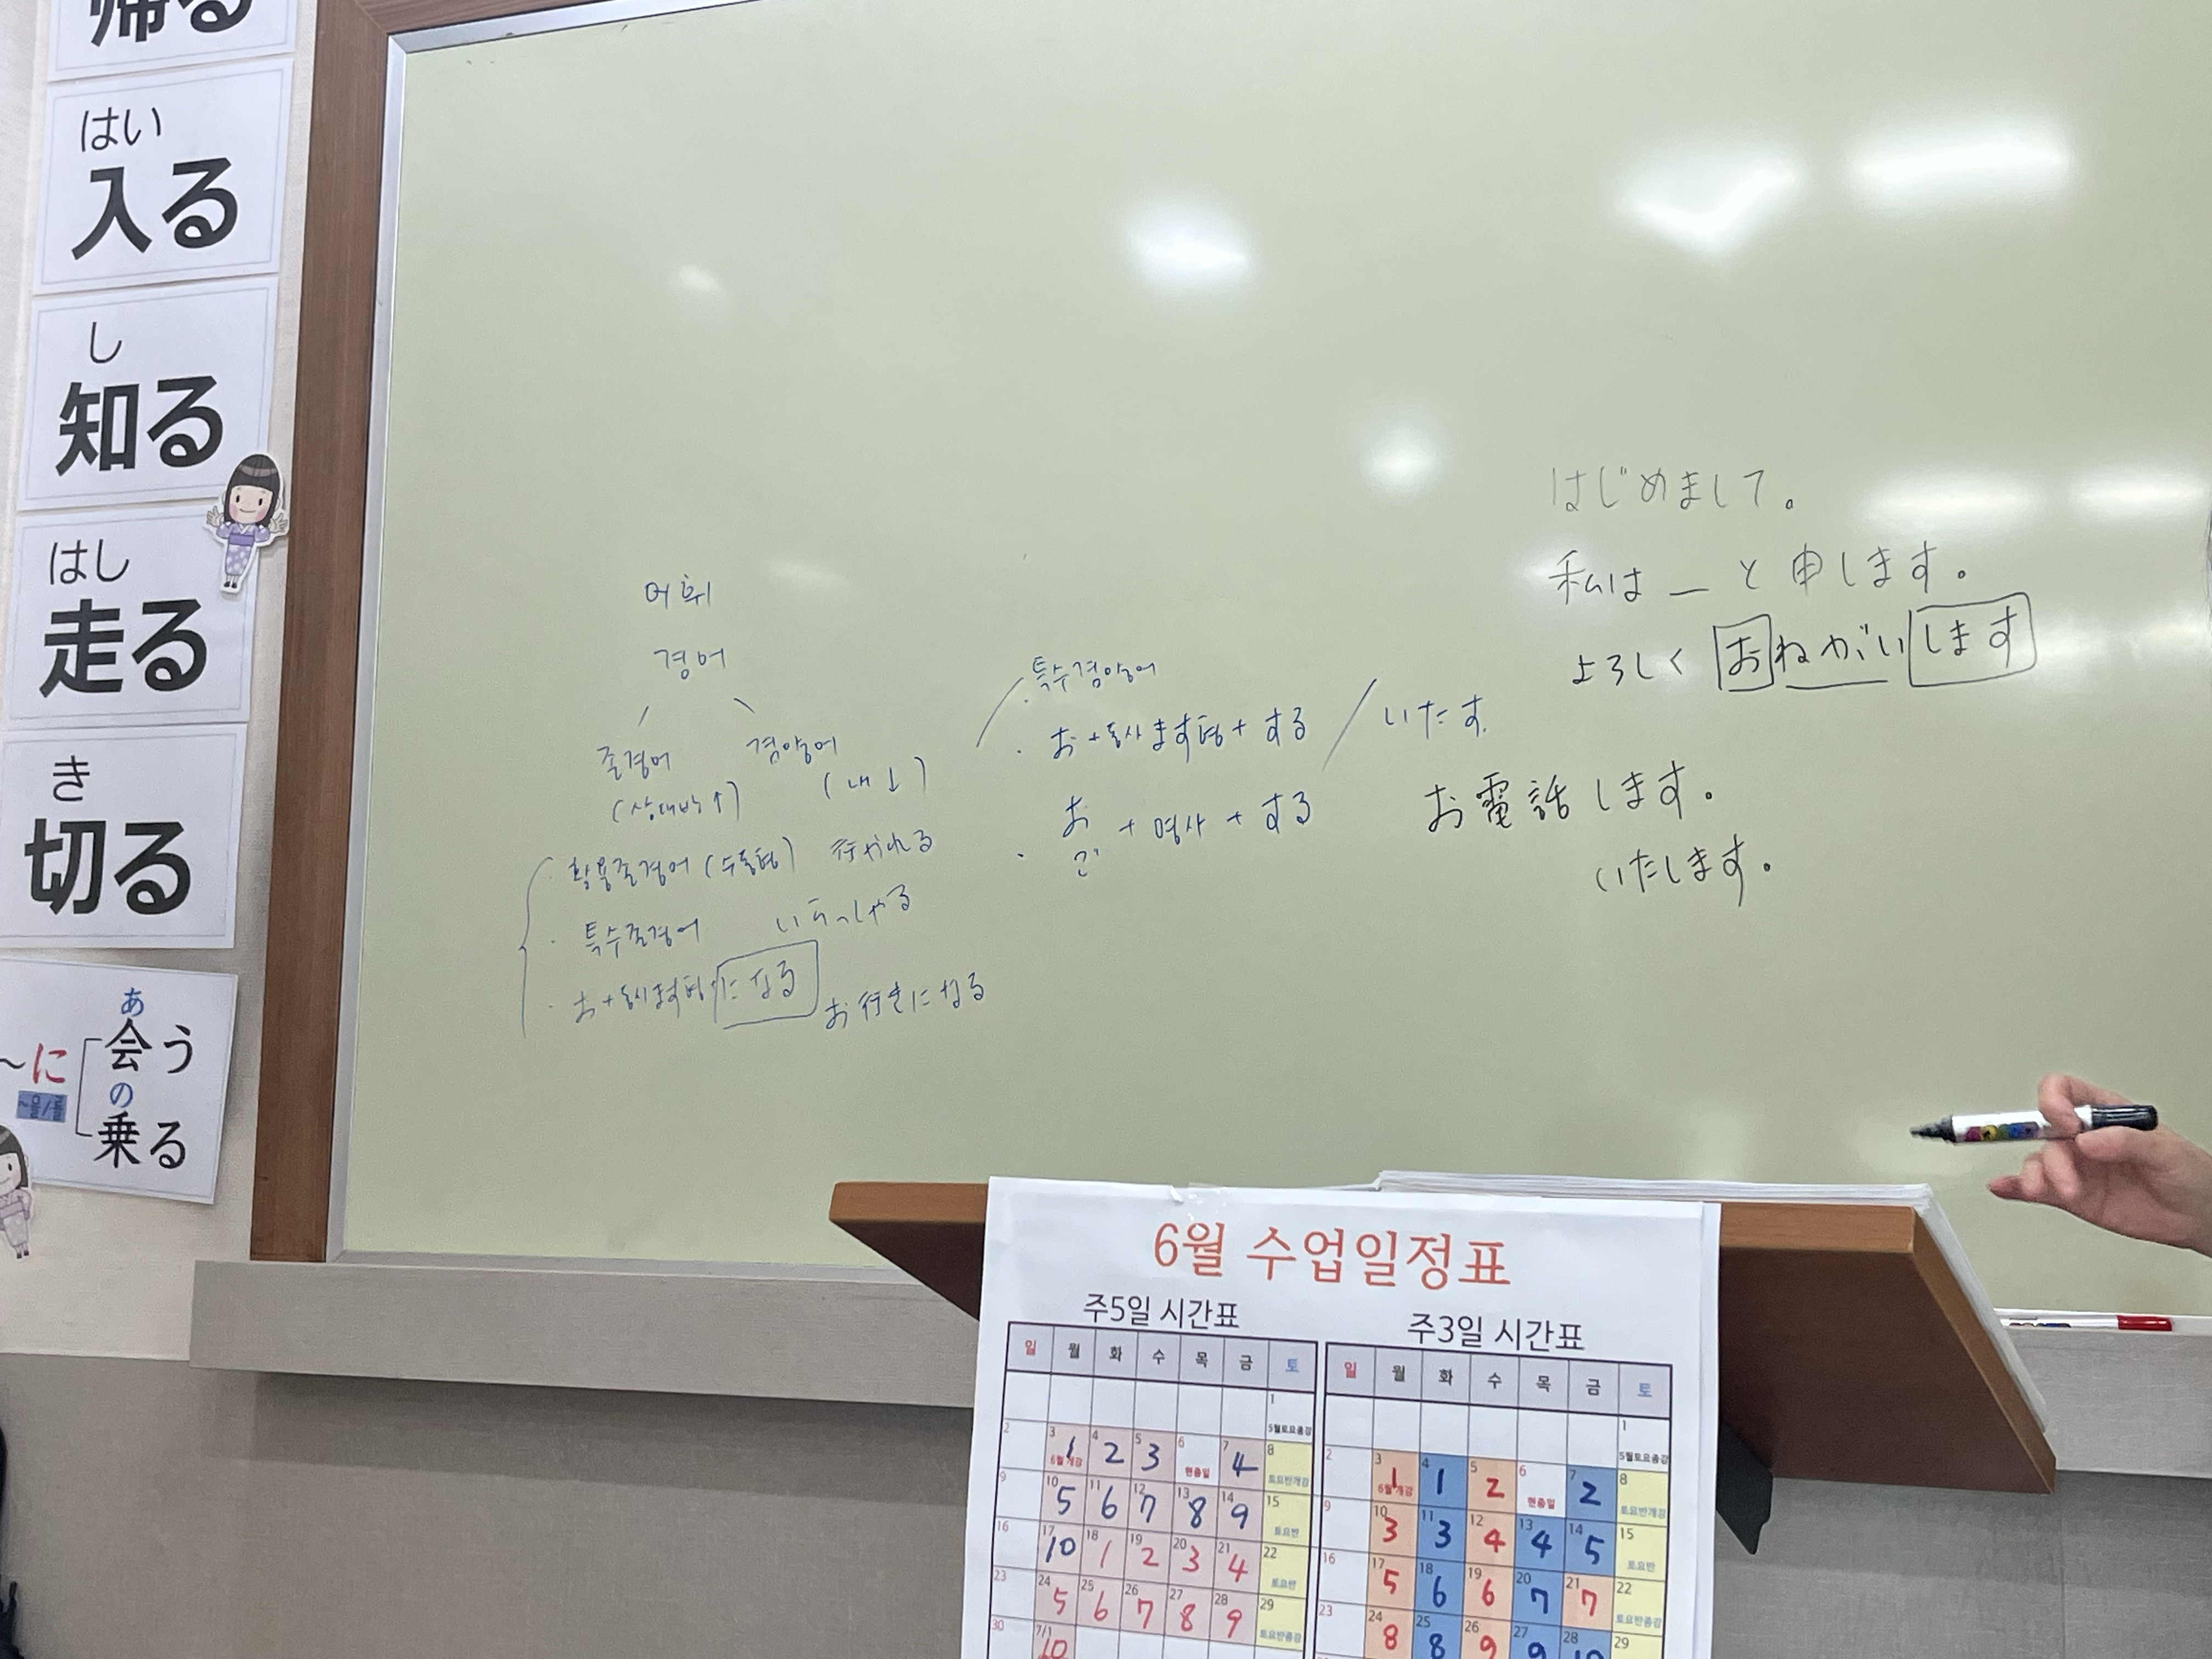 帰る
はい
入る
し
知る
はし
走る
き
切る
あ
会う
～に
~을/를
の
乗る
어휘
경어
존경어 겸양어
(상대방↑) (내↓)
· 활용존경어 (수동형) 行かれる
· 특수존경어 いらっしゃる
· お+동사ます형+になる お行きになる
· 특수겸양어
· お+동사ます형+する / いたす.
· お
ご +명사+する
はじめまして。
私は _ と申します。
よろしく おねがいします
お電話します。
いたします。
6월 수업일정표
주5일 시간표
일 월 화 수 목 금 토
1
5월토요종강
2 3 1 4 2 5 3 6 7 4 8
6월개강 현충일 토요반개강
9 10 5 11 6 12 7 13 8 14 9 15
토요반
16 17 10 18 1 19 2 20 3 21 4 22
토요반
23 24 5 25 6 26 7 27 8 28 9 29
토요반종강
30 7/1 10
주3일 시간표
일 월 화 수 목 금 토
1
5월토요종강
2 3 1 4 1 5 2 6 7 2 8
6월개강 현충일 토요반개강
9 10 3 11 3 12 4 13 4 14 5 15
토요반
16 17 5 18 6 19 6 20 7 21 7 22
토요반종강
23 24 8 25 8 26 9 27 9 28 10 29